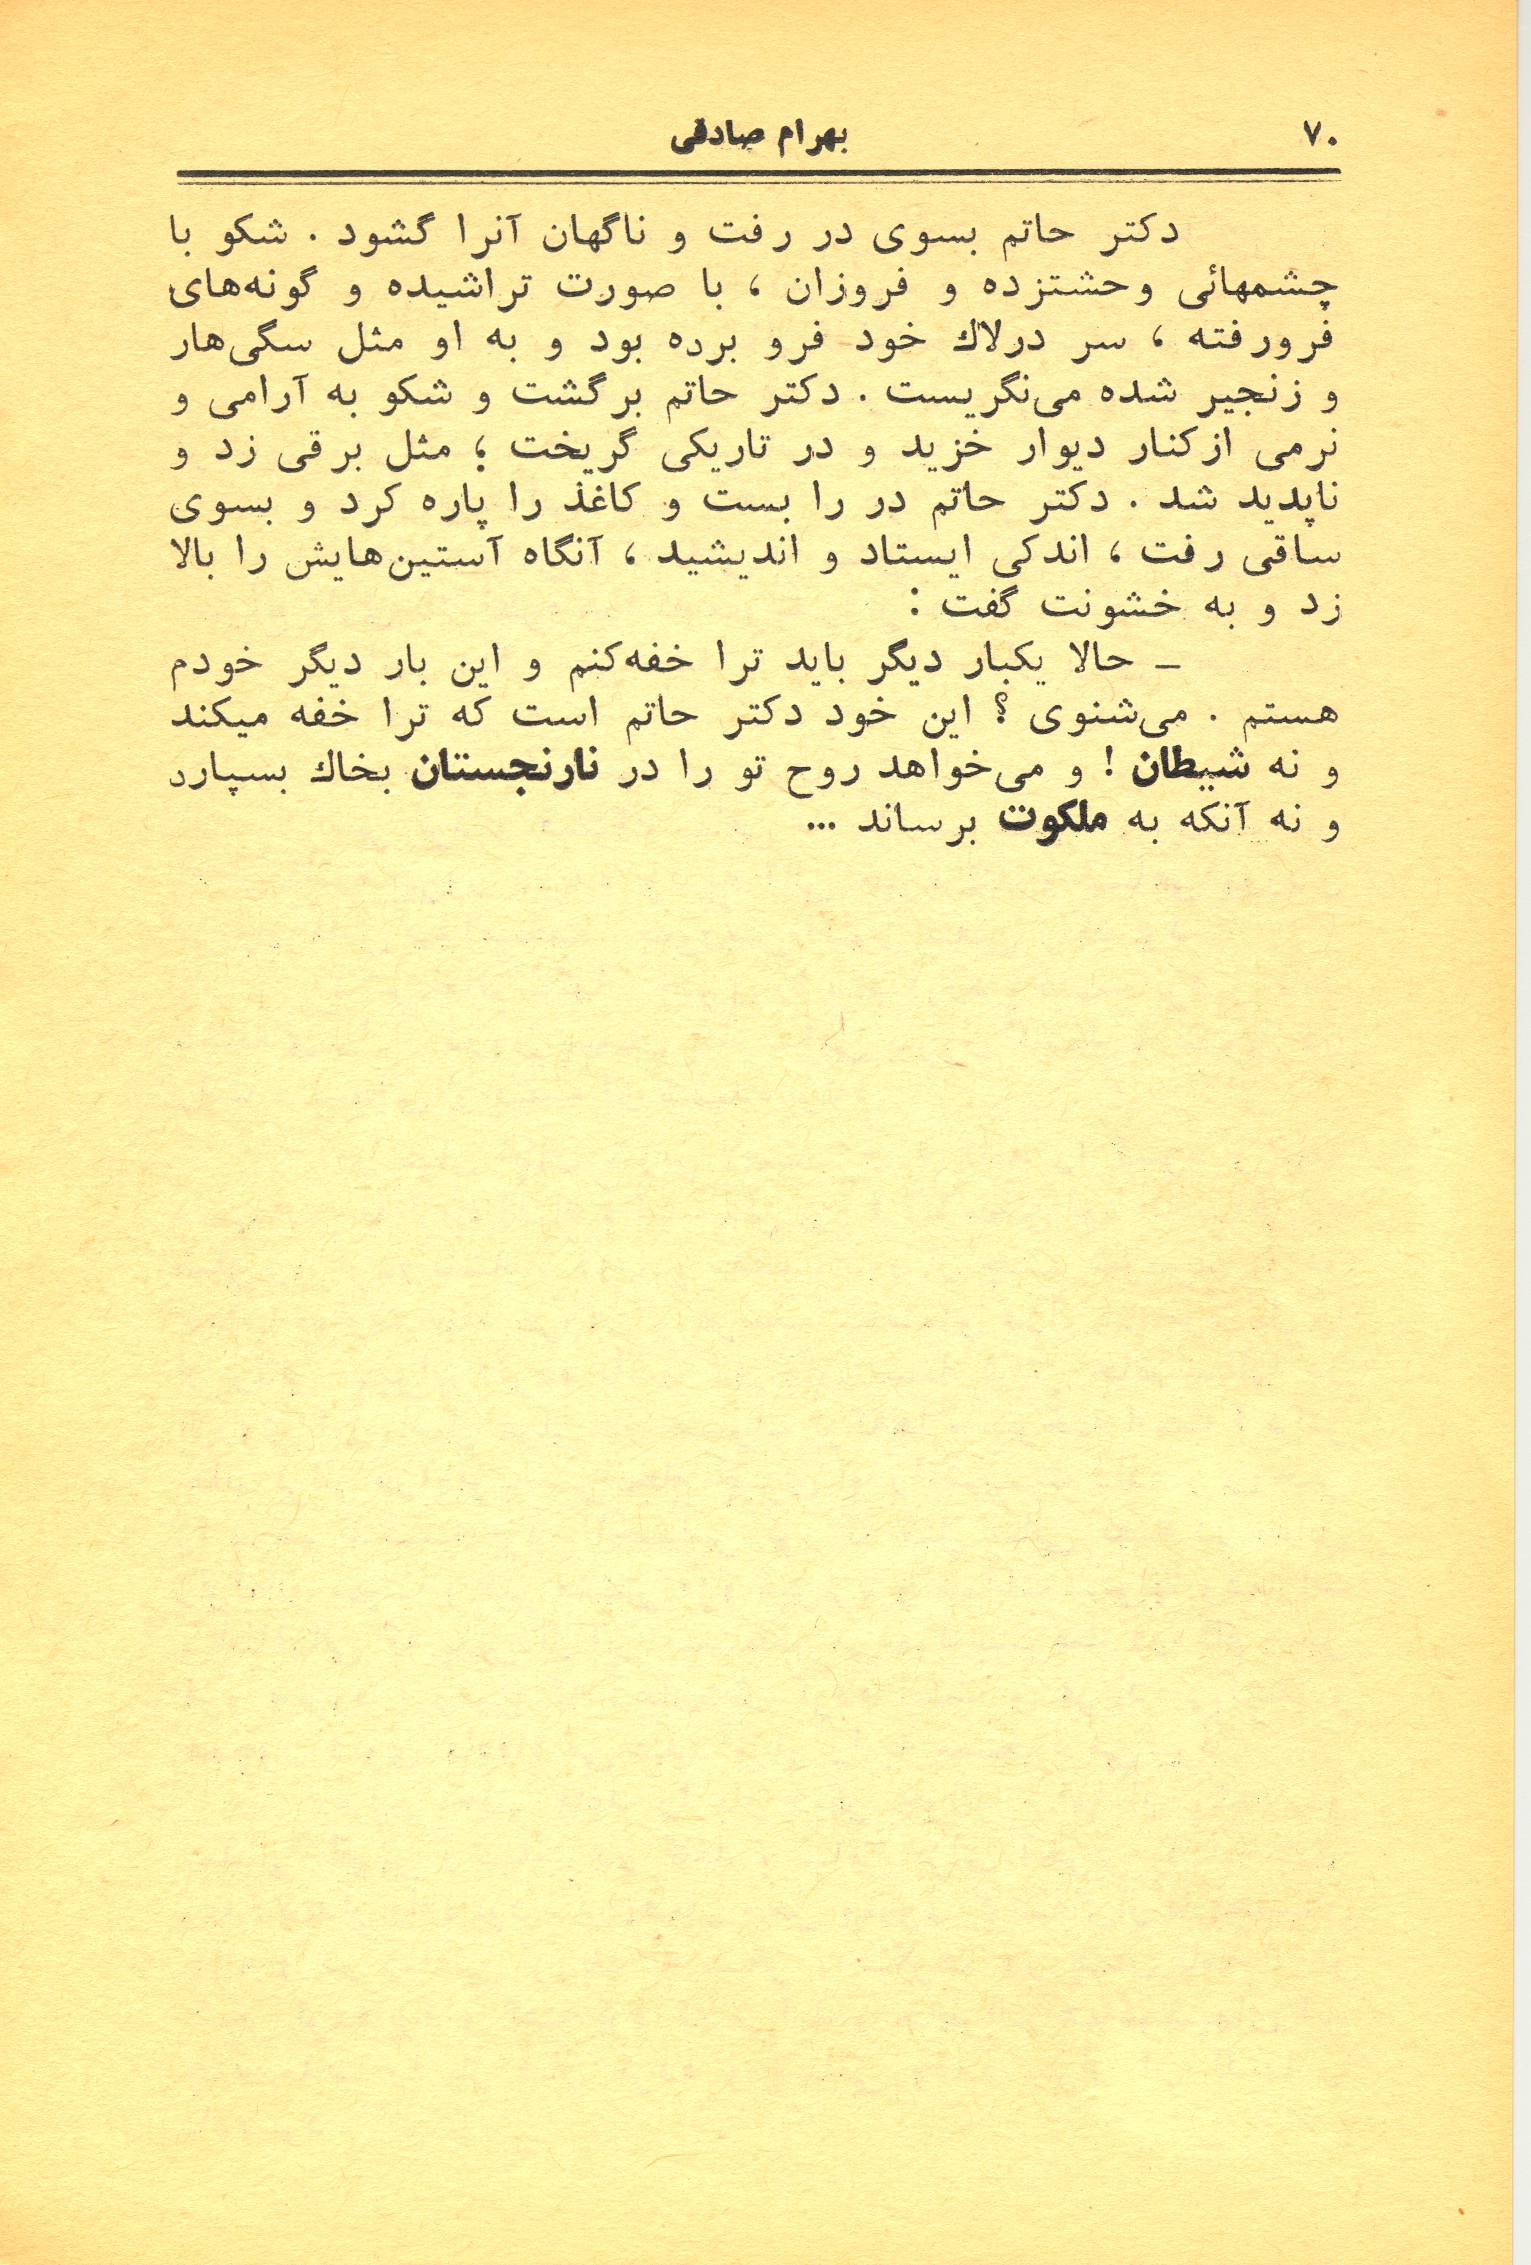 ۷۰
بهرام صادقی
دکتر حاتم بسوی در رفت و ناگهان آنرا گشود . شکو با
چشمهائی وحشتزده و فروزان ، با صورت تراشیده و گونه‌های
فرورفته ، سر درلاك خود فرو برده بود و به او مثل سگی‌هار
و زنجیر شده می‌نگریست . دکتر حاتم برگشت و شکو به آرامی و
نرمی ازکنار دیوار خزید و در تاریکی گریخت ؛ مثل برقی زد و
ناپدید شد . دکتر حاتم در را بست و کاغذ را پاره کرد و بسوی
ساقی رفت ، اندکی ایستاد و اندیشید ، آنگاه آستین‌هایش را بالا
زد و به خشونت گفت :
ــ حالا یکبار دیگر باید ترا خفه‌کنم و این بار دیگر خودم
هستم . می‌شنوی ؟ این خود دکتر حاتم است که ترا خفه میکند
و نه شیطان ! و می‌خواهد روح تو را در نارنجستان بخاك بسپارد
و نه آنکه به ملکوت برساند ...